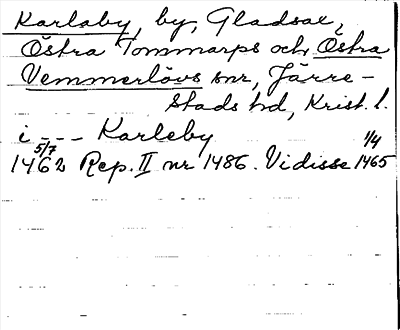 Karlaby, by, Gladsax,
Östra Tommarps och Östra
Vemmerlövs snr, Järre-
stads hd, Krist. l.
i - - - Karleby
5/7 1/4
1462 Rep. II nr 1486. Vidisse 1465